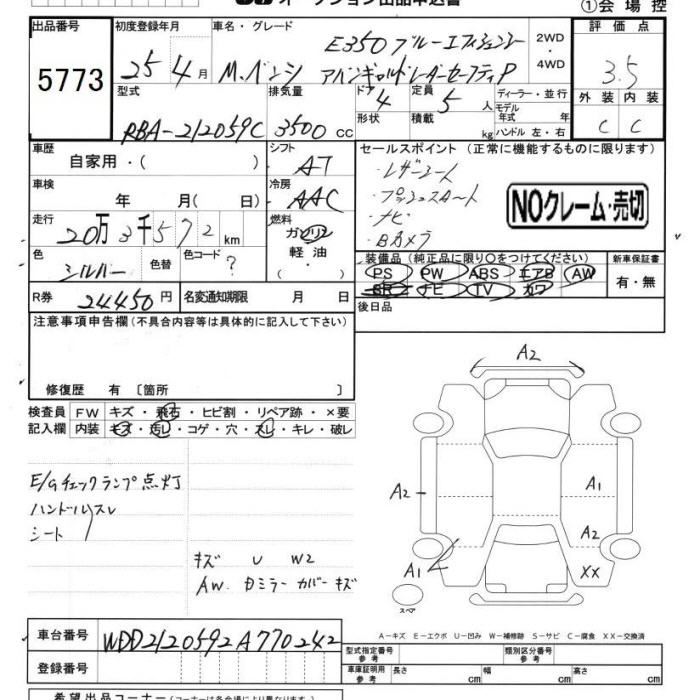 ①会場控
出品番号 初度登録年月 車名・グレード 2WD・4WD 評価点
5773 25年4月 M.ベンツ E350 ブルーエフィシェンシー アバンギャルド レダーセーフティP 3.5
型式 排気量 ドア 定員 ディーラー・並行 外装 内装
RBA-212059C 3500cc 4 5人 モデル年式 年 C C
形状 積載 kg ハンドル 左・右
車歴 シフト セールスポイント (正常に機能するものに限ります)
自家用・( ) AT ・レザーシート
車検 冷房 ・プッシュスタート
年 月( 日) AAC ・ナビ
NOクレーム・売切
走行 燃料 ・Bカメラ
20万3千572km ガソリン
色 色替 色コード 軽油 装備品 (純正品に限り○をつけてください) 新車保証書
シルバー ? ・( ) PS PW ABS エアB AW 有・無
SR ナビ TV カワ
R券 24450円 名変通知期限 月 日 後日品
注意事項申告欄 (不具合内容等は具体的に記入して下さい)
修復歴 有 〔箇所 〕
検査員 FW キズ・飛石・ヒビ割・リペア跡・×要
記入欄 内装 キズ・汚レ・コゲ・穴・スレ・キレ・破レ
E/gチェックランプ点灯
ハンドルスレ
シート
キズ U W2
AW. Dミラーカバーキズ
A2
A2
A1
A2
A1
XX
スペア
A-キズ E-エクボ U-凹み W-補修跡 S-サビ C-腐食 XX-交換済
車台番号 WDD2120592A770242
型式指定番号 参考 類別区分番号 参考
登録番号
車庫証明用 参考 長さ cm 幅 cm 高さ cm
希望出品コーナー